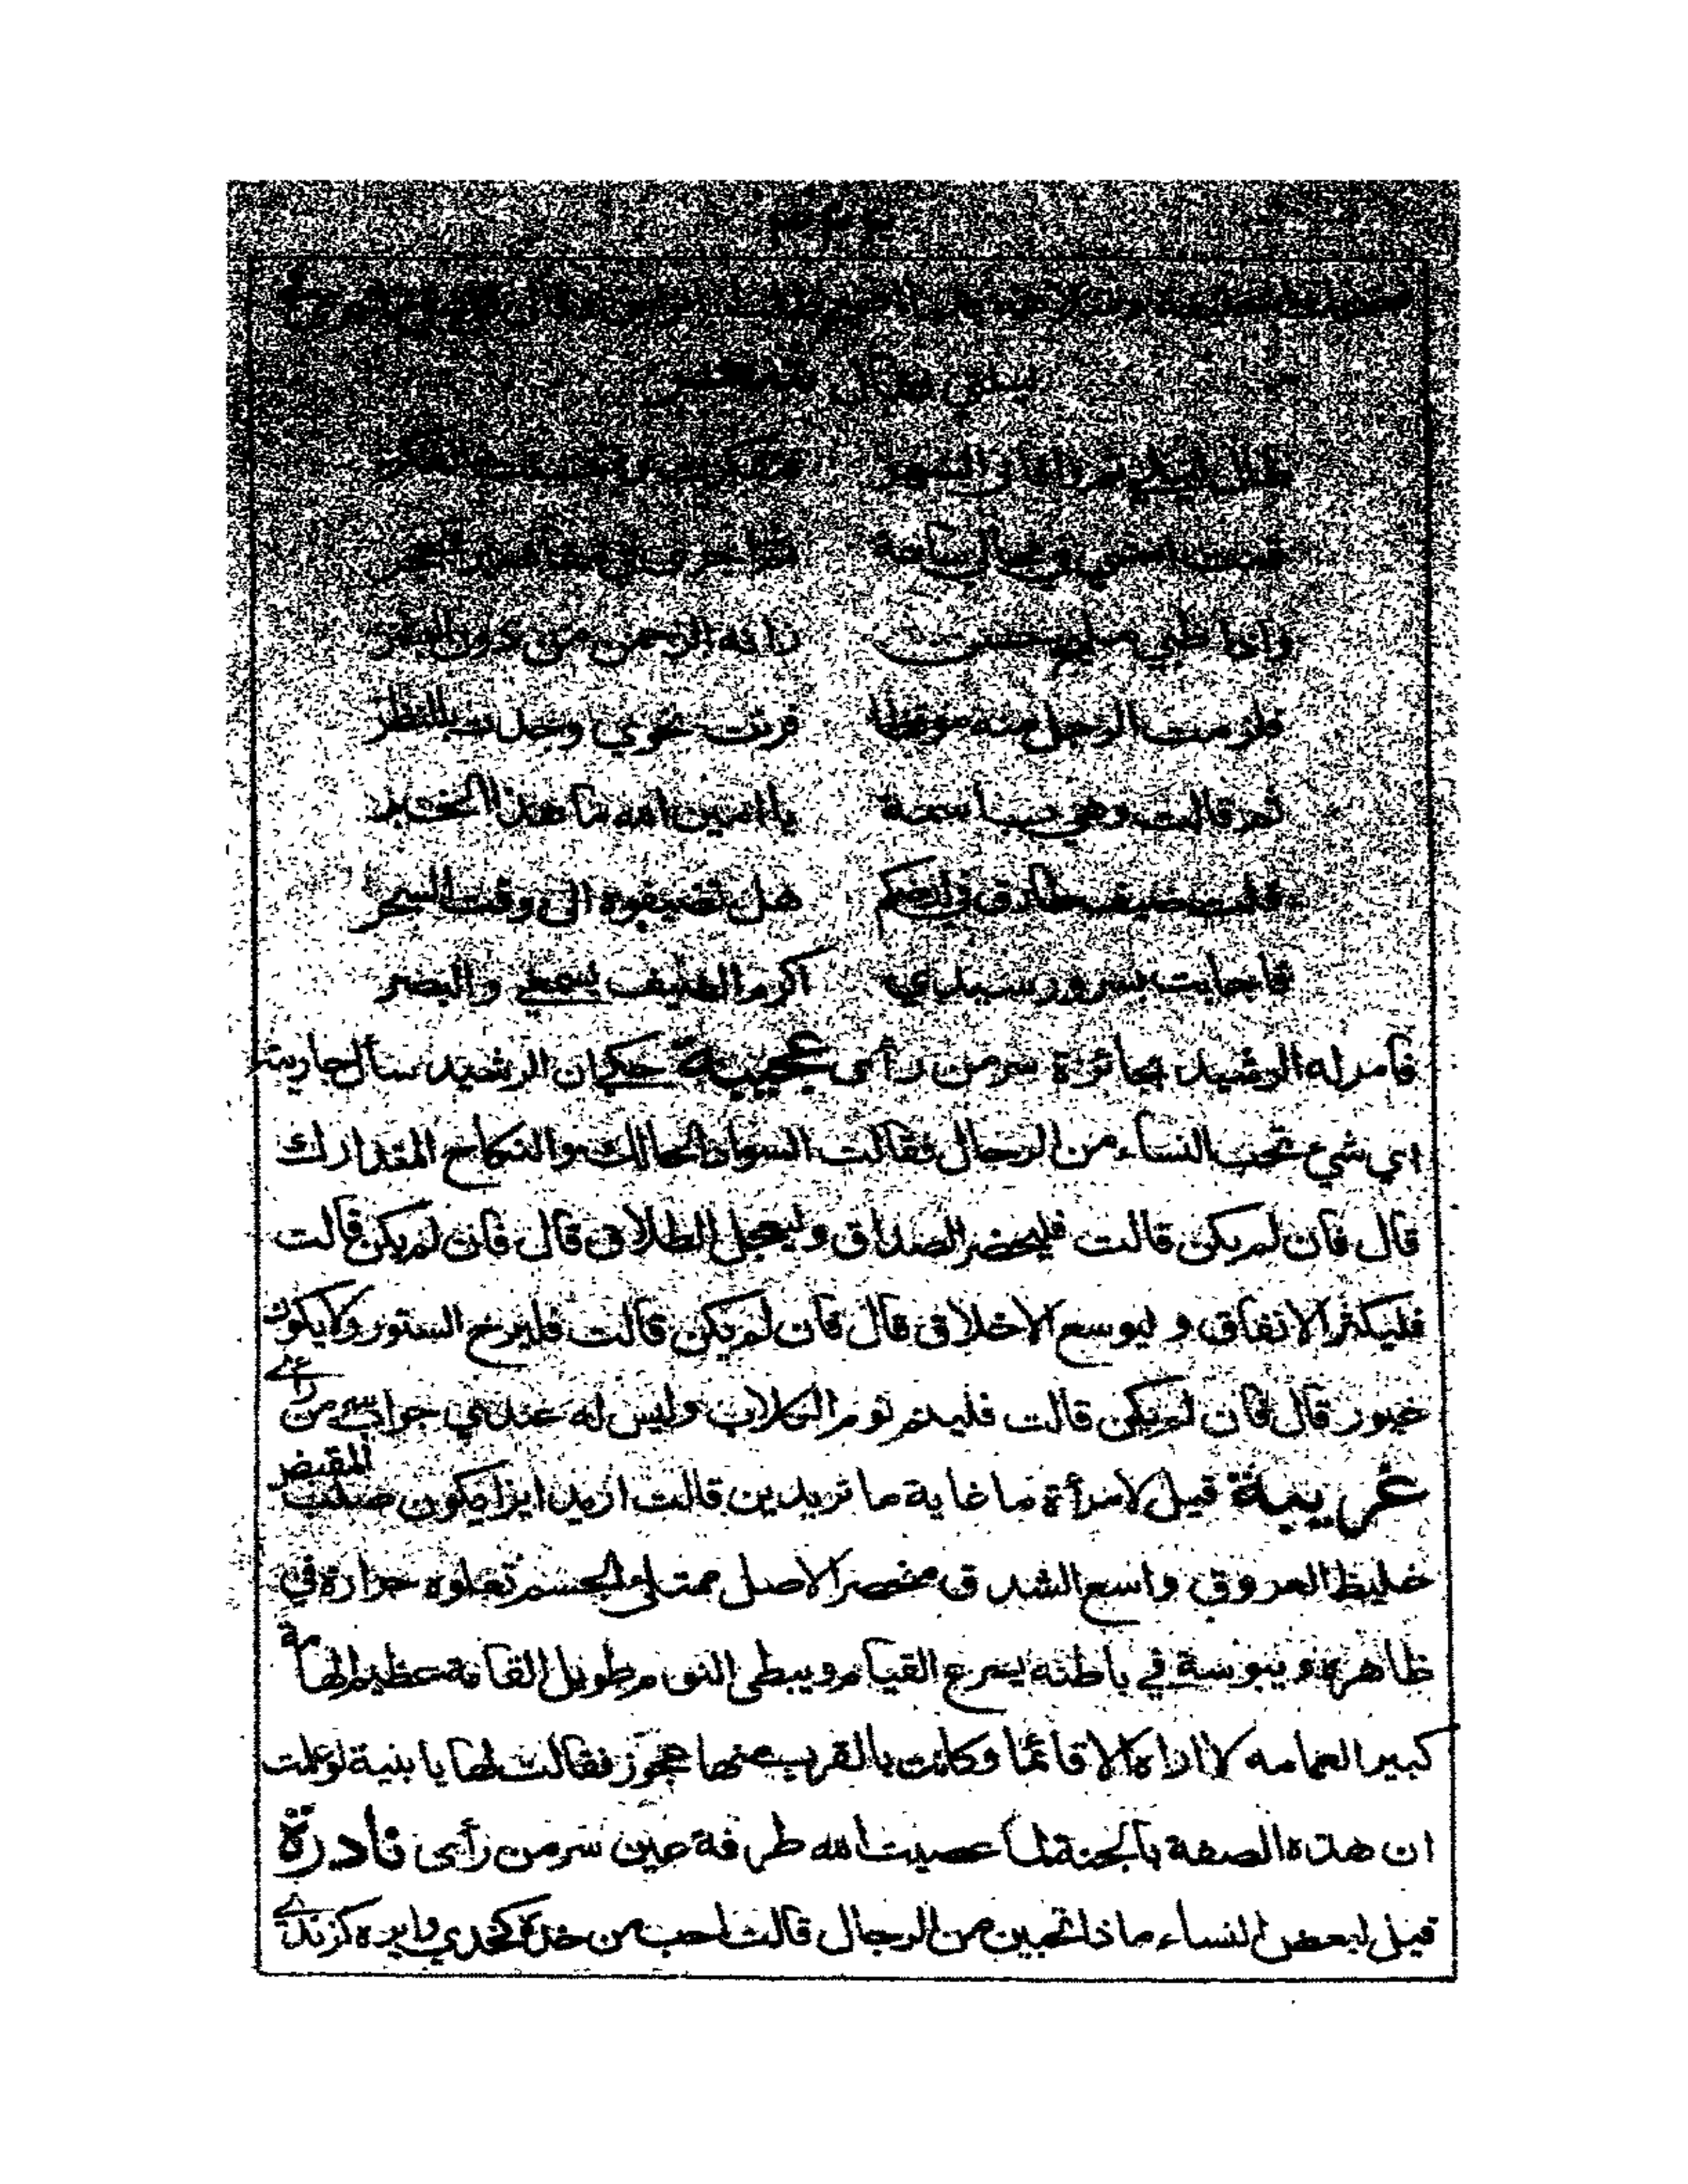 طال ليلي
فقمت امشي في مجالي ساعة
واذا ظبي مليح حسن زانه الرحمن من دون البشر
فلزمت الرجل منه موقظا فرنت نحوي وحدت بالنظر
ثم قالت وهي باسمة يا امين الله ما هذا الخبر
قلت ضيف طارق في ارضكم هل تضيفوه الى وقت السحر
فاجابت بسرور سيدي اكرم الضيف بسمعي والبصر
فأمر له الرشيد بجائزة سر من رأى عجيبة حكي ان الرشيد سأل جاريته
اي شيء تحب النساء من الرجال فقالت السواد الحالك والنكاح المتدارك
قال فان لم يكن قالت فليحضر الصداق وليعجل الطلاق قال فان لم يكن قالت
فليكثر الانفاق وليوسع الاخلاق قال فان لم يكن قالت فليرخ الستور ولا يكون
قال فان لم يكن قالت فلينم نوم الكلاب وليس له عندي جواب سر من رأى
غريبة قيل لامرأة ما غاية ما تريدين قالت اريد ايرا يكون صلب المقبض
غليظ العروق واسع الشدق مخصر الاصل ممتلئ الجسم تعلوه حرارة في
ظاهره ويبوسة في باطنه يسرع القيام ويبطي النوم طويل القامة عظيم الهامة
كبير العمامه لا اراه الا قائما وكانت بالقرب منها عجوز فقالت لها يا بنية لو علمت
ان هذه الصفة بالجنة لما عصيت الله طرفة عين سر من رأى نادرة
قيل لبعض النساء ماذا تحبين من الرجال قالت احب من خده كخدي وايره كزندي